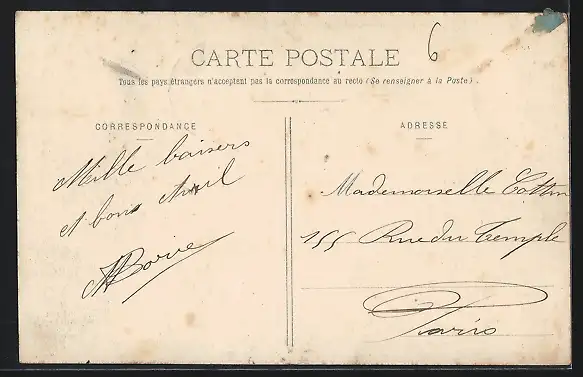 CARTE POSTALE
6
Tous les pays étrangers n'acceptent pas la correspondance au recto (Se renseigner à la Poste).
CORRESPONDANCE
Mille baisers
et bons
ADRESSE
Mademoiselle Cottin
155 Rue du Temple
Paris